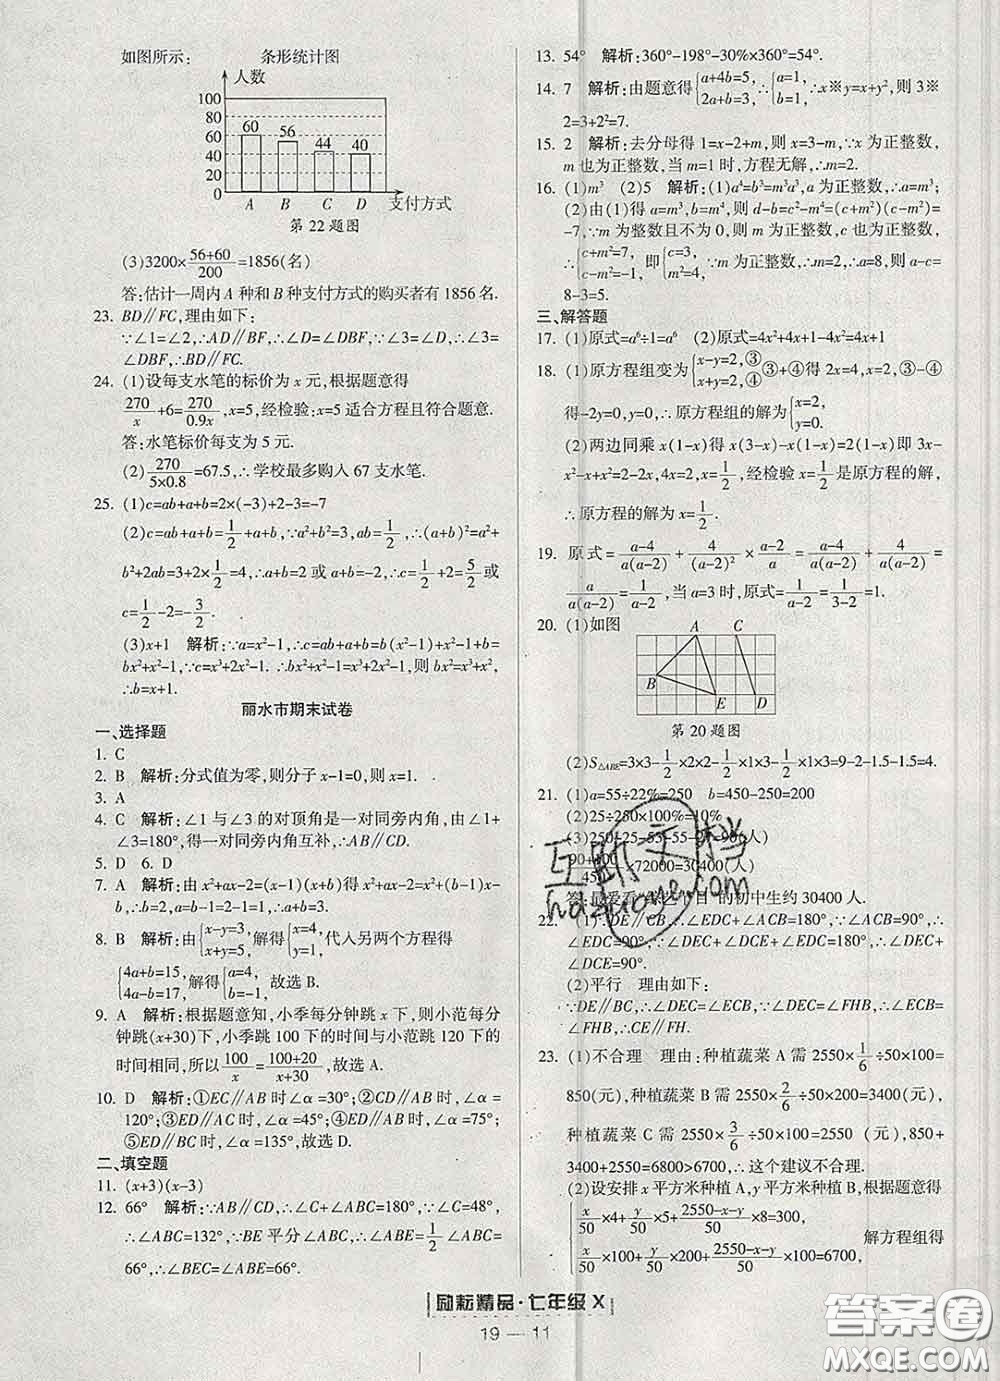 如图所示： 条形统计图
人数
100
80
60
40
20
0
60 56 44 40
A B C D 支付方式
第22题图
(3)3200×\frac{56+60}{200}=1856(名)
答:估计一周内 A 种和 B 种支付方式的购买者有 1856 名.
23. BD∥FC,理由如下:
∵∠1=∠2,∴AD∥BF,∴∠3=∠DBF,∵∠3=
∠DBF,∴BD∥FC.
24. (1)设每支水笔的标价为 x 元,根据题意得
\frac{270}{x}+6=\frac{270}{0.9x},x=5,经检验:x=5 适合方程且符合题意.
答:水笔标价每支为 5 元.
(2)\frac{270}{5×0.8}=67.5,∴学校最多购入 67 支水笔.
25. (1)c=ab+a+b=2×(-3)+2-3=-7
(2)c=ab+a+b=\frac{1}{2}+a+b,∵a²+b²=3,ab=\frac{1}{2},∴(a+b)²=a²+
b²+2ab=3+2×\frac{1}{2}=4,∴a+b=2 或 a+b=-2,∴c=\frac{1}{2}+2=\frac{5}{2}或
c=\frac{1}{2}-2=-\frac{3}{2}.
(3)x+1 解析:∵a=x²-1,∴c=ab+a+b=b(x²-1)+x²-1+b=
bx²+x²-1,∵c=x³+2x²-1.∴bx²+x²-1=x³+2x²-1,则bx²=x³+x²,
∴b=x+1.
丽水市期末试卷
一、选择题
1. C
2. B 解析:分式值为零,则分子 x-1=0,则 x=1.
3. A
4. C 解析:∠1 与∠3 的对顶角是一对同旁内角,由∠1+
∠3=180°,得一对同旁内角互补,∴AB∥CD.
5. D 6. D
7. A 解析:由x²+ax-2=(x-1)(x+b)得x²+ax-2=x²+(b-1)x-b,
则 b=2,a=b-1=2-1=1,∴a+b=3.
8. B 解析:由{x-y=3, x+y=5,解得{x=4, y=1,代入另两个方程得
{4a+b=15, 4a-b=17,解得{a=4, b=-1,故选 B.
9. A 解析:根据题意知,小季每分钟跳 x 下,则小范每分
钟跳(x+30)下,小季跳 100 下的时间与小范跳 120 下的
时间相同,所以\frac{100}{x}=\frac{100+20}{x+30},故选 A.
10. D 解析:①EC∥AB 时∠α=30°;②AB∥CD 时,∠α=
120°;③ED∥AC 时,∠α=45°;④ED∥AB 时,∠α=75°;
⑤ED∥BC 时,∠α=135°,故选 D.
二、填空题
11. (x+3)(x-3)
12. 66° 解析:∵AB∥CD,∴∠C+∠ABC=180°,∵∠C=48°,
∴∠ABC=132°,∵BE 平分∠ABC,∴∠ABE=\frac{1}{2}∠ABC=
66°,∴∠BEC=∠ABE=66°.
13. 54° 解析:360°-198°-30%×360°=54°.
14. 7 解析:由题意得{a+4b=5, 2a+b=3,∴{a=1, b=1,∴x※y=x+y²,则 3※
2=3+2²=7.
15. 2 解析:去分母得 1=x-2+m,则 x=3-m,∵x 为正整数,
m 也为正整数,当 m=1 时,方程无解,∴m=2.
16. (1)m³ (2)5 解析:(1)a⁴=b³=m³a³,a 为正整数,∴a=m³;
(2)由(1)得 a=m³,b=m⁴,则 d-b=c²-m⁴=(c+m²)(c-m²)=
-7,∵m 为整数且不为 0,则 m 为正整数,c 也为正整数,
∴{c+m²=7, c-m²=-1,即{c=3, m²=4,∵m 为正整数,∴m=2,∴a=8,则 a-c=
8-3=5.
三、解答题
17. (1)原式=a⁶÷1=a⁶ (2)原式=4x²+4x+1-4x²=4x+1
18. (1)原方程组变为{x-y=2,③ x+y=2,④③+④得 2x=4,x=2,③-④
得-2y=0,y=0,∴原方程组的解为{x=2, y=0.
(2)两边同乘 x(1-x)得 x(3-x)-x(1-x)=2(1-x)即 3x-
x²-x+x²=2-2x,4x=2,x=\frac{1}{2},经检验 x=\frac{1}{2}是原方程的解,
∴原方程的解为 x=\frac{1}{2}.
19. 原式=\frac{a-4}{a(a-2)}+\frac{4}{(a-2)²}×\frac{a-2}{a}=\frac{a-4}{a(a-2)}+\frac{4}{a(a-2)}=
\frac{a}{a(a-2)}=\frac{1}{a-2},当 a=3 时,原式=\frac{1}{3-2}=1.
20. (1)如图
A C
B
E D
第20题图
(2)S△ABE=3×3-\frac{1}{2}×2×2-\frac{1}{2}×1×3-\frac{1}{2}×1×3=9-2-1.5-1.5=4.
21. (1)a=55÷22%=250 b=450-250=200
(2)25÷250×100%=10%
×72000=30400(人)
初中生约 30400 人.
22. (1)∵DE∥CB,∴∠EDC+∠ACB=180°,∵∠ACB=90°,∴
∠EDC=90°,∵∠DEC+∠DCE+∠EDC=180°,∴∠DEC+
∠DCE=90°.
(2)平行 理由如下:
∵DE∥BC,∴∠DEC=∠ECB,∵∠DEC=∠FHB,∴∠ECB=
∠FHB,∴CE∥FH.
23. (1)不合理 理由:种植蔬菜 A 需 2550×\frac{1}{6}÷50×100=
850(元),种植蔬菜 B 需 2550×\frac{2}{6}÷50×200=3400(元),
种植蔬菜 C 需 2550×\frac{3}{6}÷50×100=2550 (元),850+
3400+2550=6800>6700,∴这个建议不合理.
(2)设安排 x 平方米种植 A,y 平方米种植 B,根据题意得
{\frac{x}{50}×4+\frac{y}{50}×5+\frac{2550-x-y}{50}×8=300, \frac{x}{50}×100+\frac{y}{50}×200+\frac{2550-x-y}{50}×100=6700 解方程组得
励耘精品·七年级 X
19 — 11
答案圈
MXQE.COM